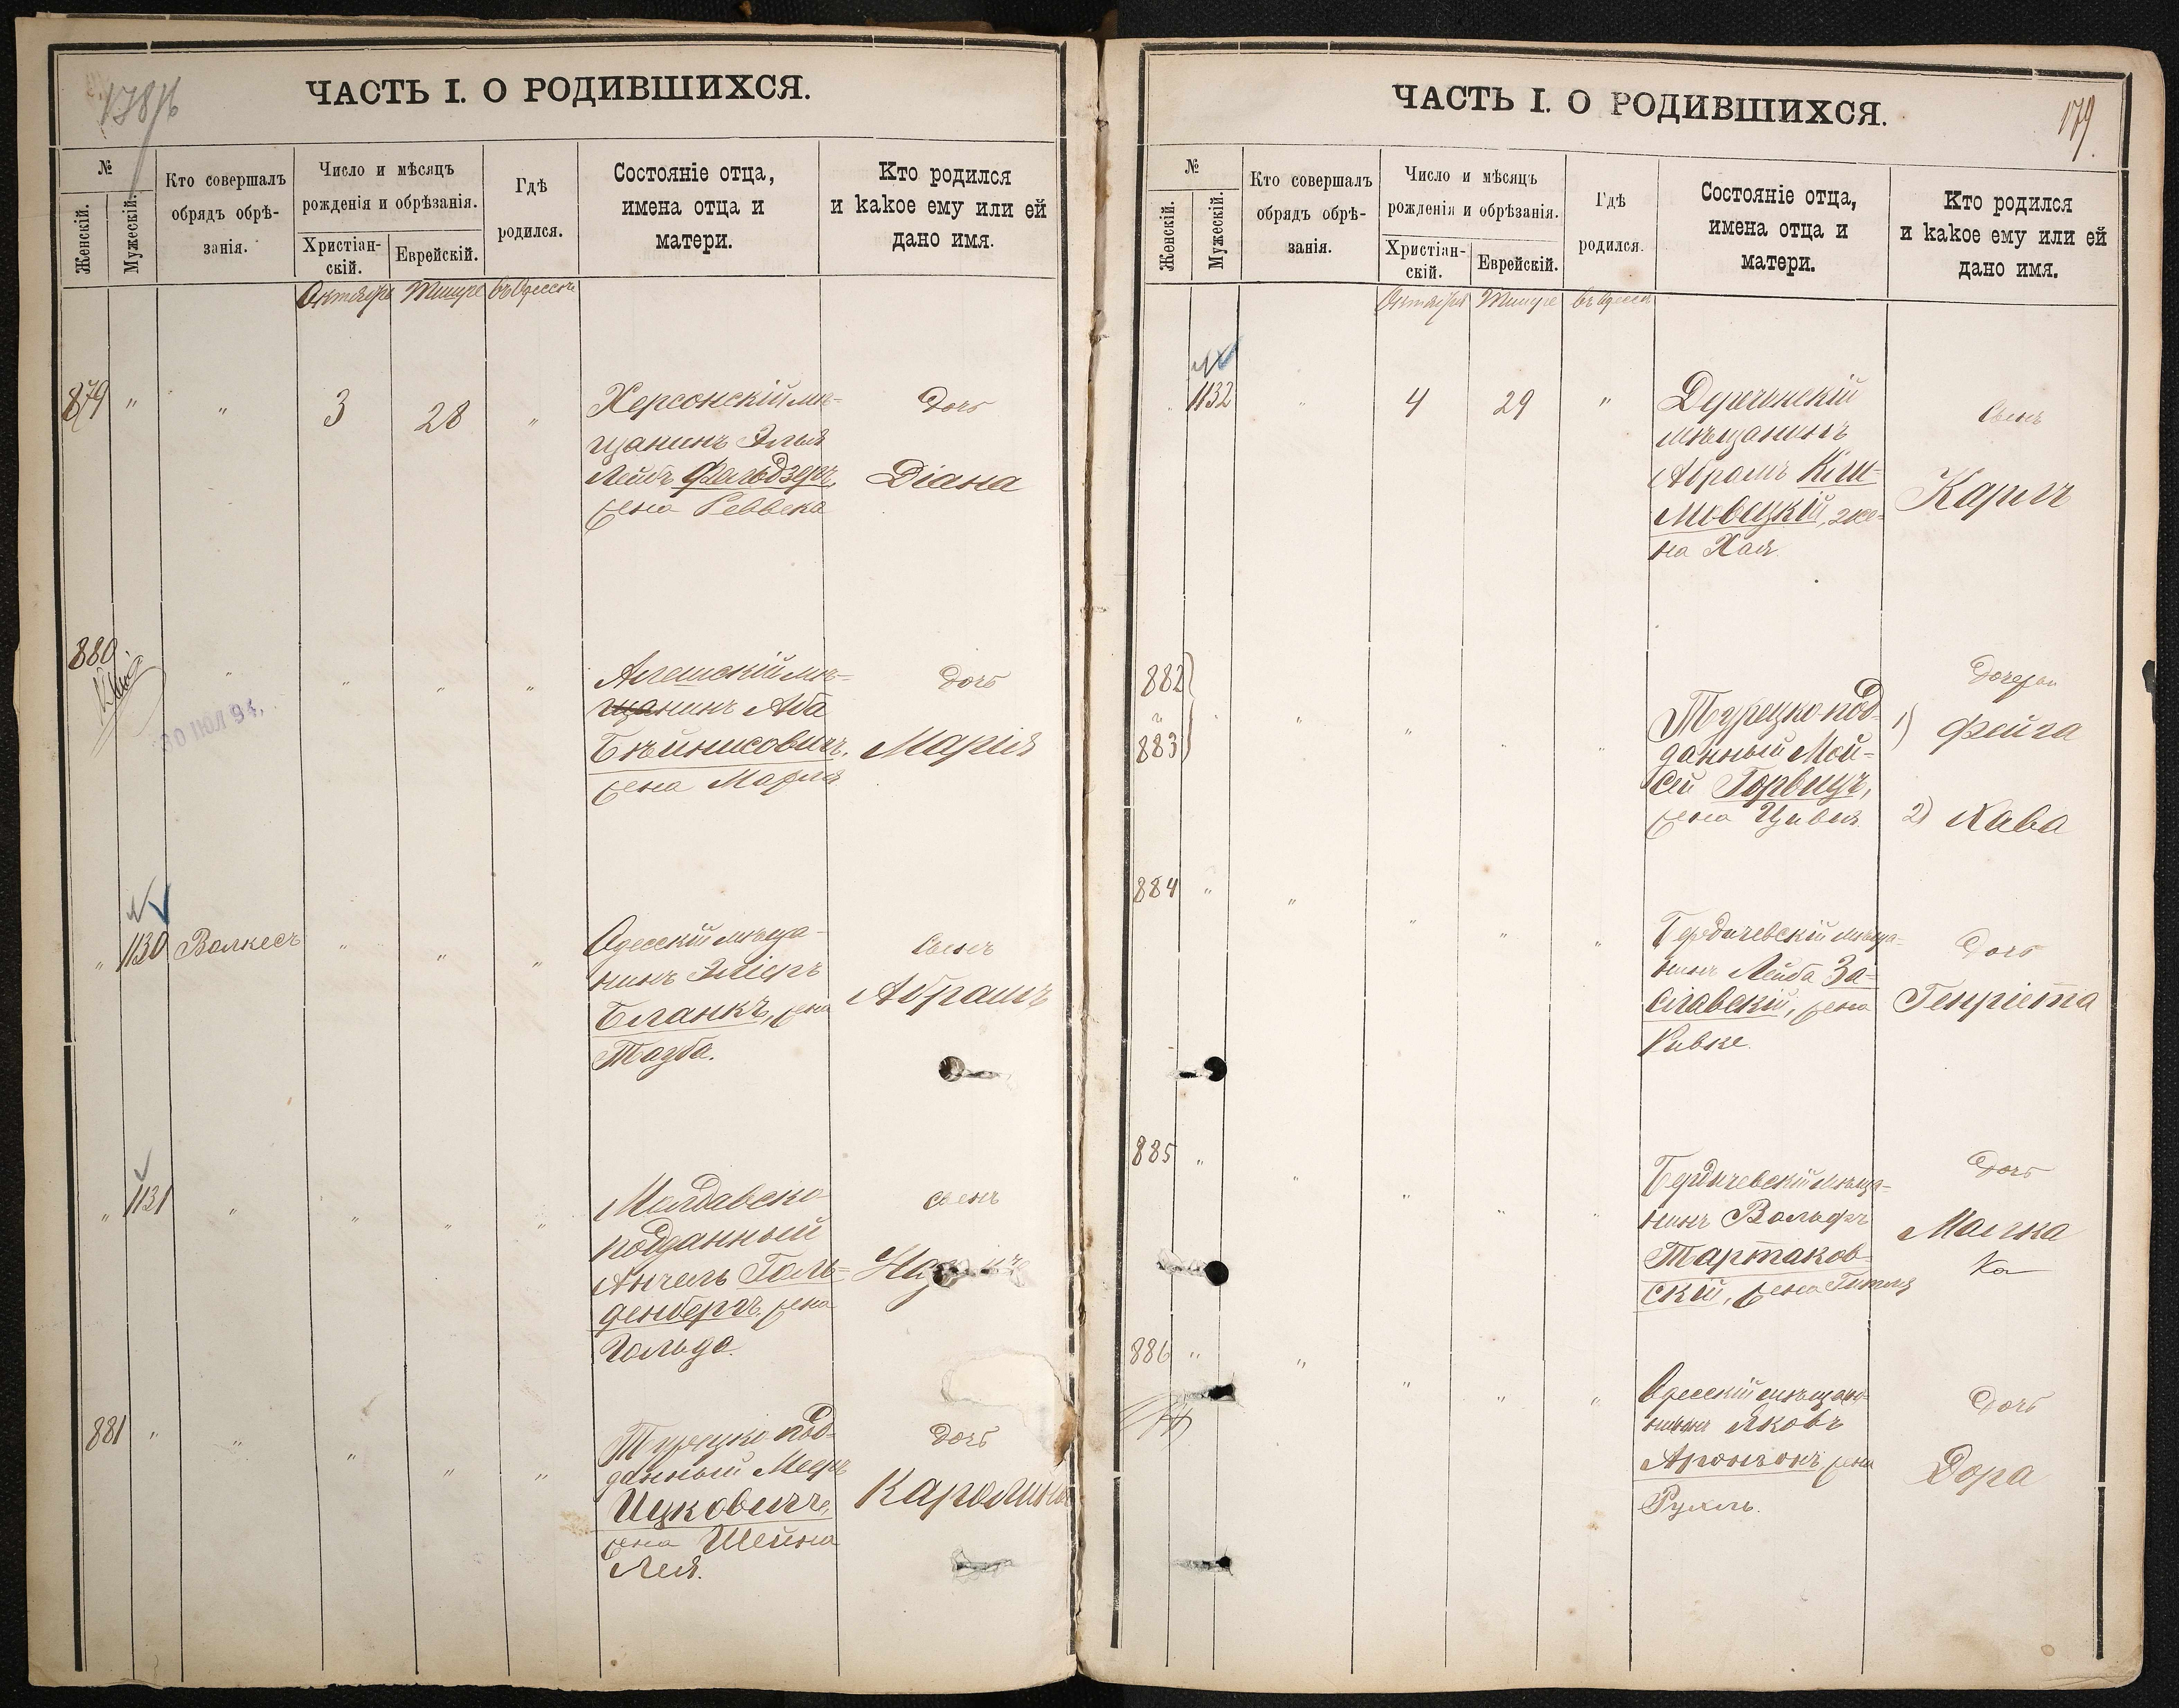 178/б
ЧАСТЬ I. О РОДИВШИХСЯ.
№
Женскій.
Мужескій.
Кто совершалъ
обрядъ обрѣ-
занія.
Число и мѣсяцъ
рожденія и обрѣзанія.
Христіан-
скій.
Еврейскій.
Гдѣ
родился.
Состояніе отца,
имена отца и
матери.
Кто родился
и какое ему или ей
дано имя.
Октября Тишре въ Одессѣ
879 " " 3 28 "
Херсонскій мѣ-
щанинъ Элья
Лейбъ Фельдзеръ,
жена Реввека
Дочь
Діана
880.
30 ІЮЛ 94.
Алешскій мѣ-
щанинъ Аба
жена Марія
Дочь
Марія
" 1130 Волкесъ " " "
Одесскій мѣща-
нинъ Эліеръ
Бланкъ, жена
Тауба.
Сынъ
Абрамъ
" 1131 " " " "
Молдавско
подданный
Анчель Голь-
денбергъ, жена
Гольда.
сынъ
881 " " " " "
Турецко-под-
данный Мееръ
Ицковичъ,
жена Шейна
Лея.
Дочь
Каролина
179.
ЧАСТЬ I. О РОДИВШИХСЯ.
№
Женскій.
Мужескій.
Кто совершалъ
обрядъ обрѣ-
занія.
Число и мѣсяцъ
рожденія и обрѣзанія.
Христіан-
скій.
Еврейскій.
Гдѣ
родился.
Состояніе отца,
имена отца и
матери.
Кто родился
и какое ему или ей
дано имя.
Октября Тишре въ Одессѣ
1132 " 4 29 "
Деречинскій
мѣщанинъ
Абрамъ Киш-
мовецкій, же-
на Хая.
Сынъ
Карлъ
882
и
883
Турецко-под-
данный Мой-
сей Горвицъ,
жена Цивья
Дочери
1) Фейга
2) Хава
884 " " " " "
Бердичевскій мѣща-
нинъ Лейба За-
славскій, жена
Ривке.
Дочь
Генріета
885 " " " " "
Бердичевскій мѣща-
нинъ Вольфъ
Тартаков-
скій, жена Гитля
Дочь
Малка
Ка
886 " " " " "
Одесскій мѣща-
нинъ Яковъ
Аронзонъ, жена
Рухль.
Дочь
Дора